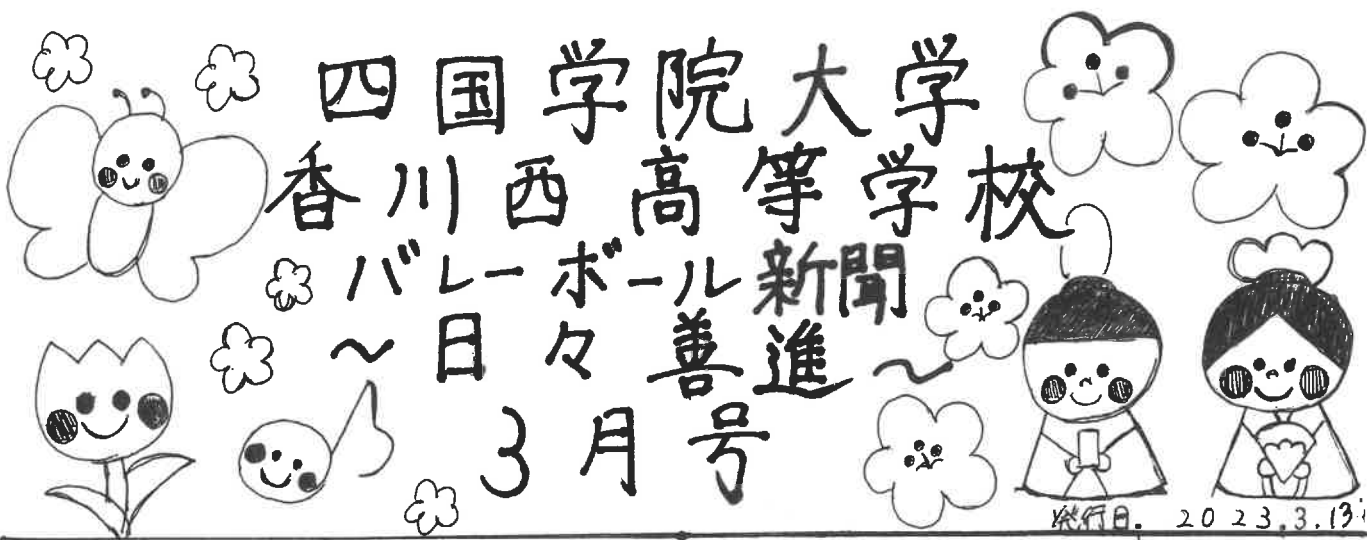 四国学院大学
香川西高等学校
バレーボール新聞
～日々善進～
3月号
発行日. 2023.3.13